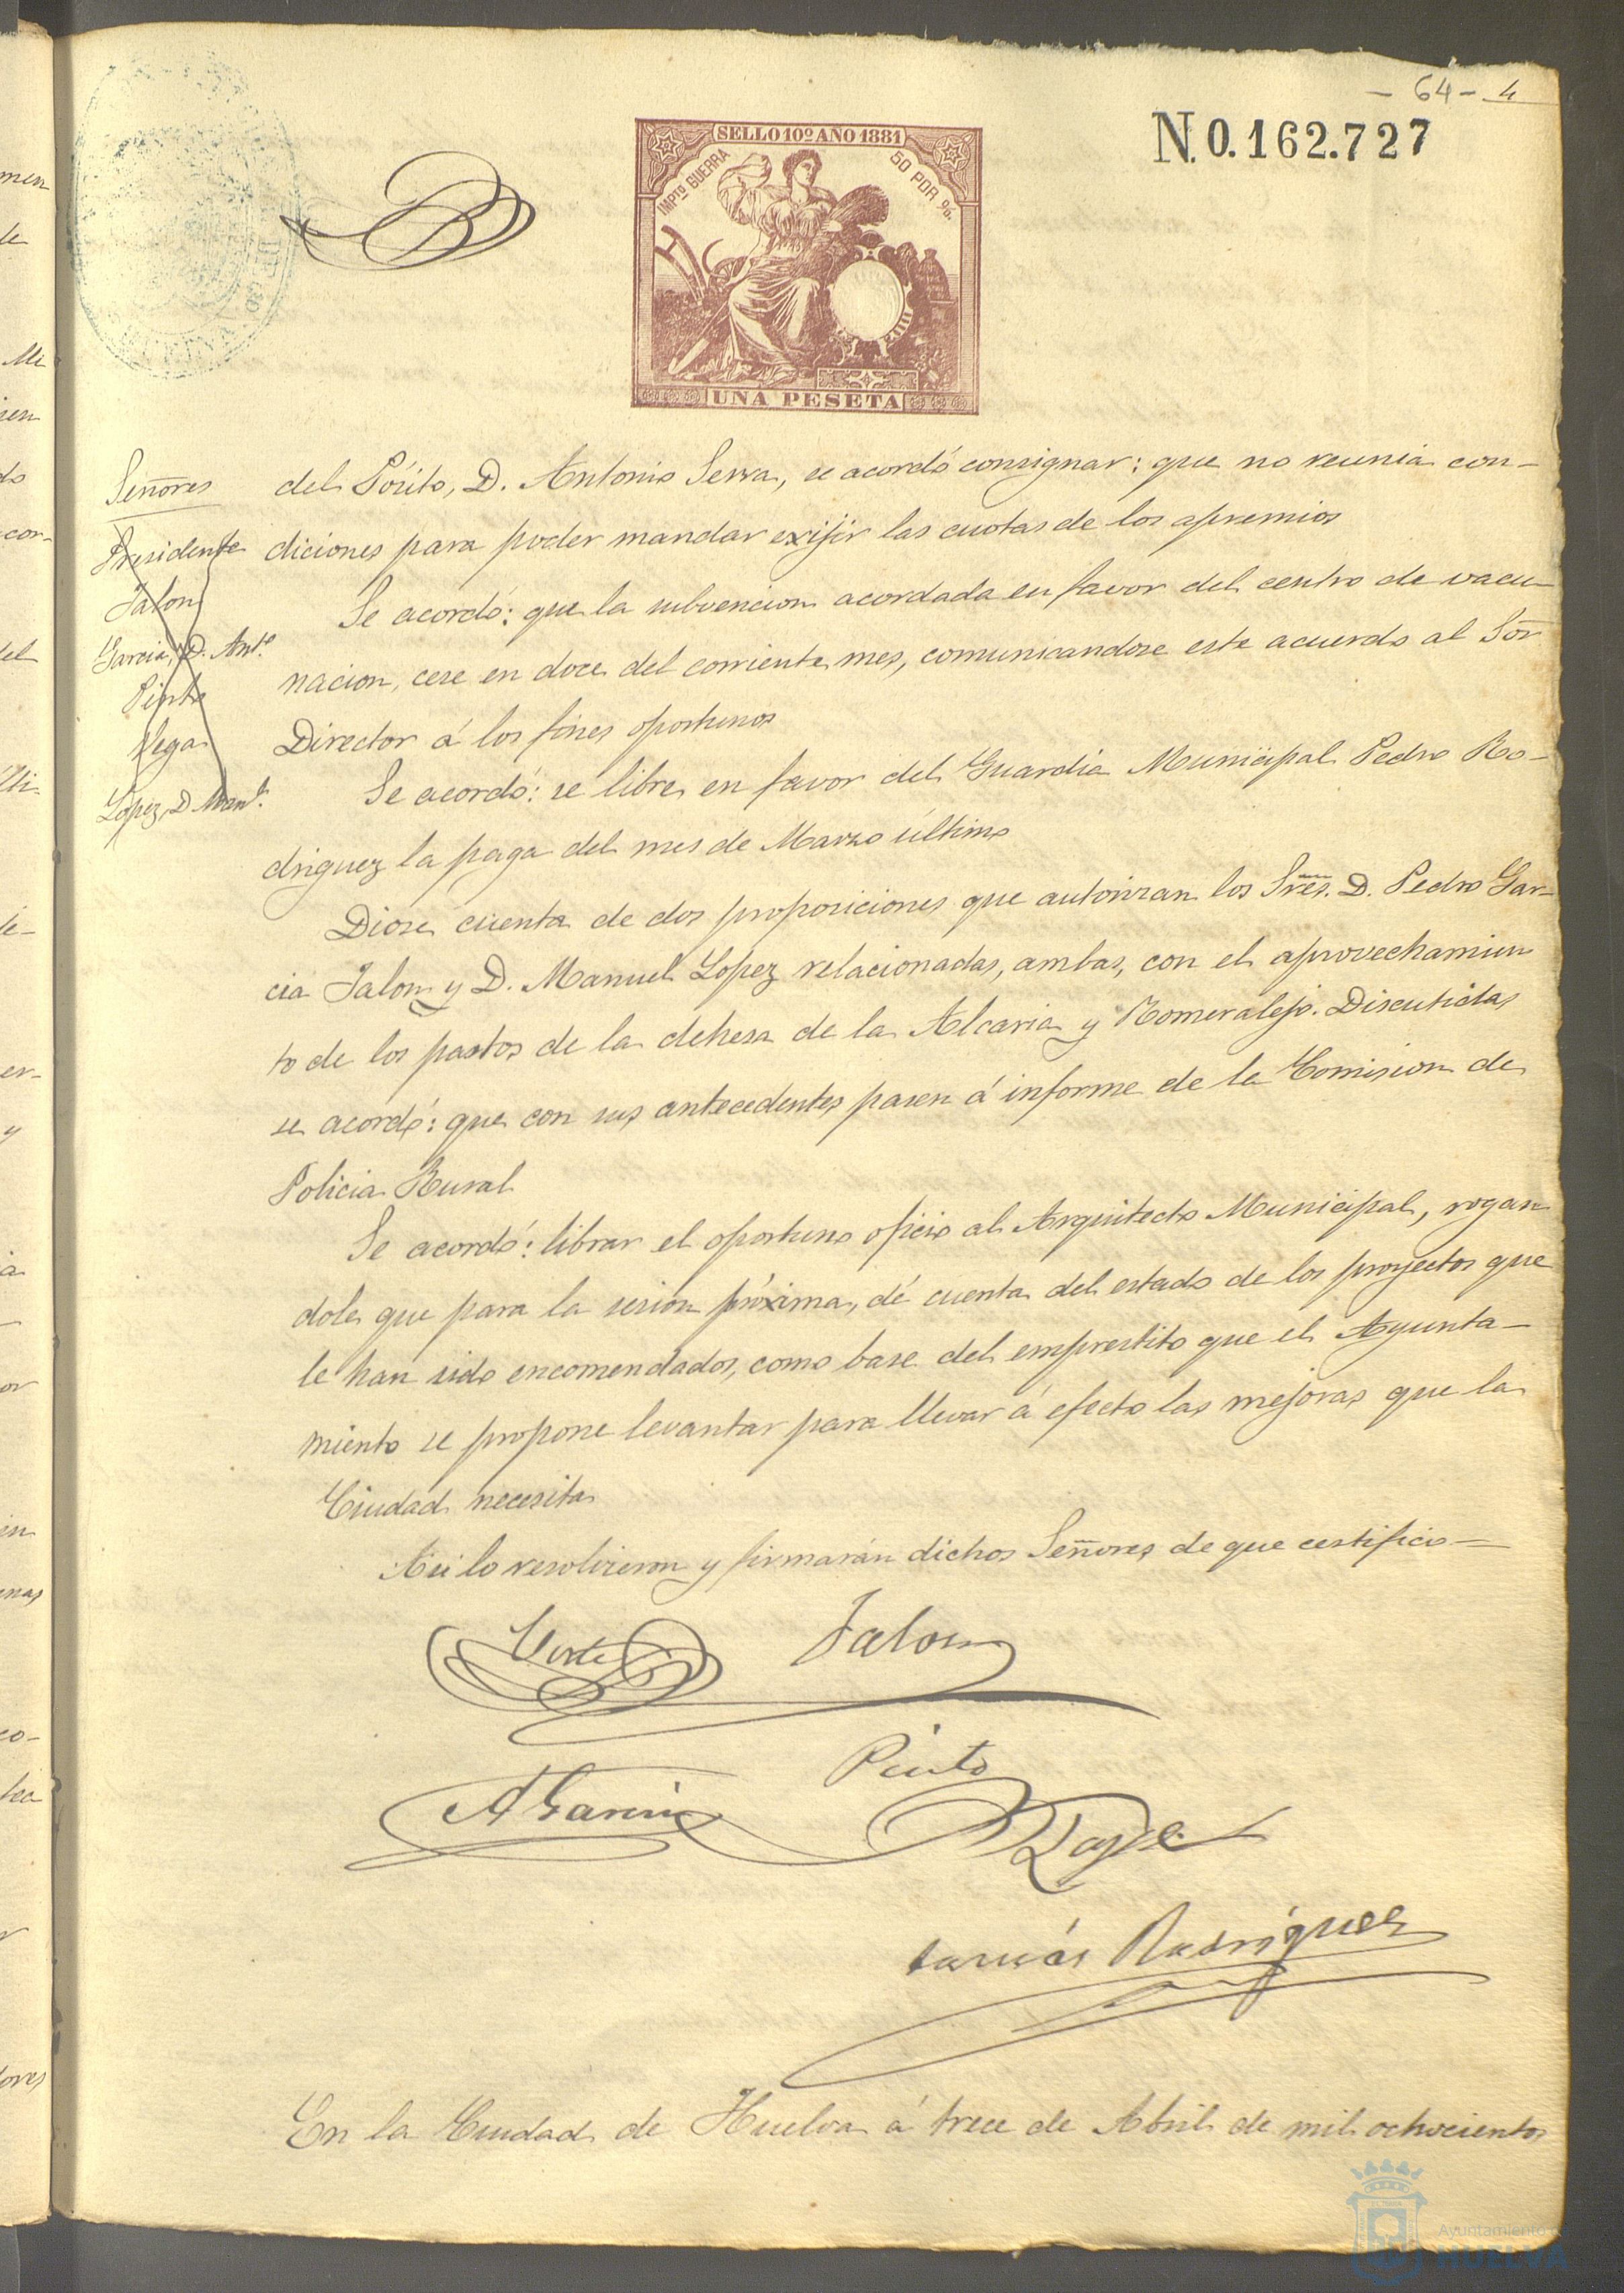 - 64 - 4
N. 0.162.727
SELLO 10º AÑO 1881
IMPTO GUERRA
50 POR %.
UNA PESETA
Señores
Presidente
Jalon
Garcia, D. Antº
Pinto
Vega
Lopez, D. Manl.
del Pósito, D. Antonio Serra, se acordó consignar: que no reunia con-
diciones para poder mandar exijir las cuotas de los apremios
Se acordó: que la subvencion acordada en favor del centro de vacu-
nacion, cese en doce del corriente mes, comunicandose este acuerdo al Sor
Director á los fines oportunos
Se acordó: se libre en favor del Guardia Municipal Pedro Ro-
driguez la paga del mes de Marzo último
Diose cuenta de dos proposiciones que autorizan los Sres. D. Pedro Gar-
cia Jalon y D. Manuel Lopez relacionadas, ambas, con el aprovechamien
to de los pastos de la dehesa de la Alcaria y Romeralejo. Discutidas
se acordó: que con sus antecedentes pasen á informe de la Comision de
Policia Rural
Se acordó: librar el oportuno oficio al Arquitecto Municipal, rogan
dole que para la sesion próxima, dé cuenta del estado de los proyectos que
le han sido encomendados, como base del emprestito que el Ayunta-
miento se propone levantar para llevar á efecto las mejoras que la
Ciudad necesita
Asi lo resolvieron y firmarán dichos Señores de que certifico
Jalon
Pinto
A Garcia
Lopez
Tomás Rodriguez
En la Ciudad de Huelva á trece de Abril de mil ochocientos
Ayuntamiento
HUELVA